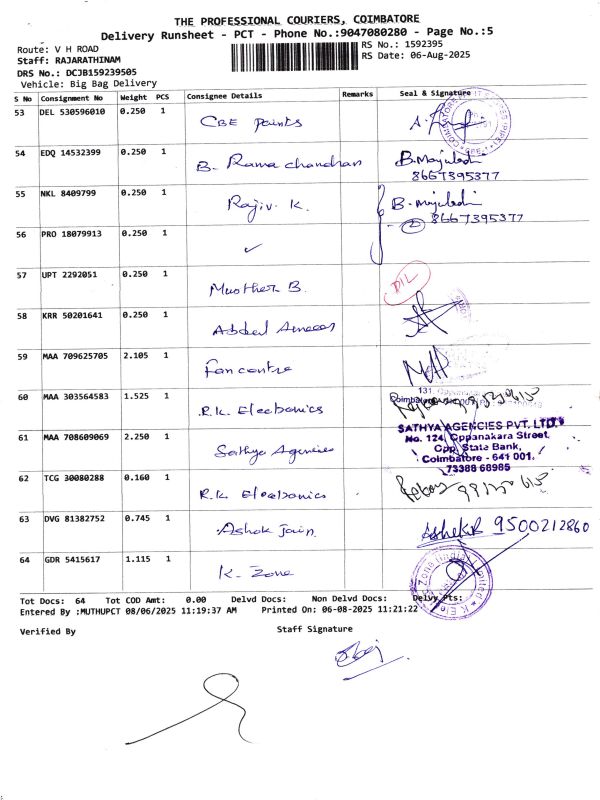 THE PROFESSIONAL COURIERS, COIMBATORE
Delivery Runsheet - PCT - Phone No.:9047080280 - Page No.:5
Route: V H ROAD
RS No.: 1592395
Staff: RAJARATHINAM
RS Date: 06-Aug-2025
DRS No.: DCJB159239505
Vehicle: Big Bag Delivery
S No Consignment No Weight PCS Consignee Details Remarks Seal & Signature
53 DEL 530596010 0.250 1 CBE Paints
54 EDQ 14532399 0.250 1 B. Rama chandran B. Majuladi
8667395377
55 NKL 8409799 0.250 1 Rajiv. K. B. Majuladi
8667395377
56 PRO 18079913 0.250 1
57 UPT 2292051 0.250 1 B. DIL
58 KRR 50201641 0.250 1 Abdul
59 MAA 709625705 2.105 1 Fan centre
60 MAA 303564583 1.525 1 R.K. Electronics
61 MAA 708609069 2.250 1 Sathya Agencies
SATHYA AGENCIES PVT. LTD.
No. 124, Oppanakara Street,
Opp. State Bank,
Coimbatore - 641 001.
73388 68985
62 TCG 30080288 0.160 1 R.K. Electronics
63 DVG 81382752 0.745 1 Ashok Jain. AshokR 9500212860
64 GDR 5415617 1.115 1 K. Zone
Tot Docs: 64 Tot COD Amt: 0.00 Delvd Docs: Non Delvd Docs: Delvy Pts:
Entered By :MUTHUPCT 08/06/2025 11:19:37 AM Printed On: 06-08-2025 11:21:22
Verified By Staff Signature